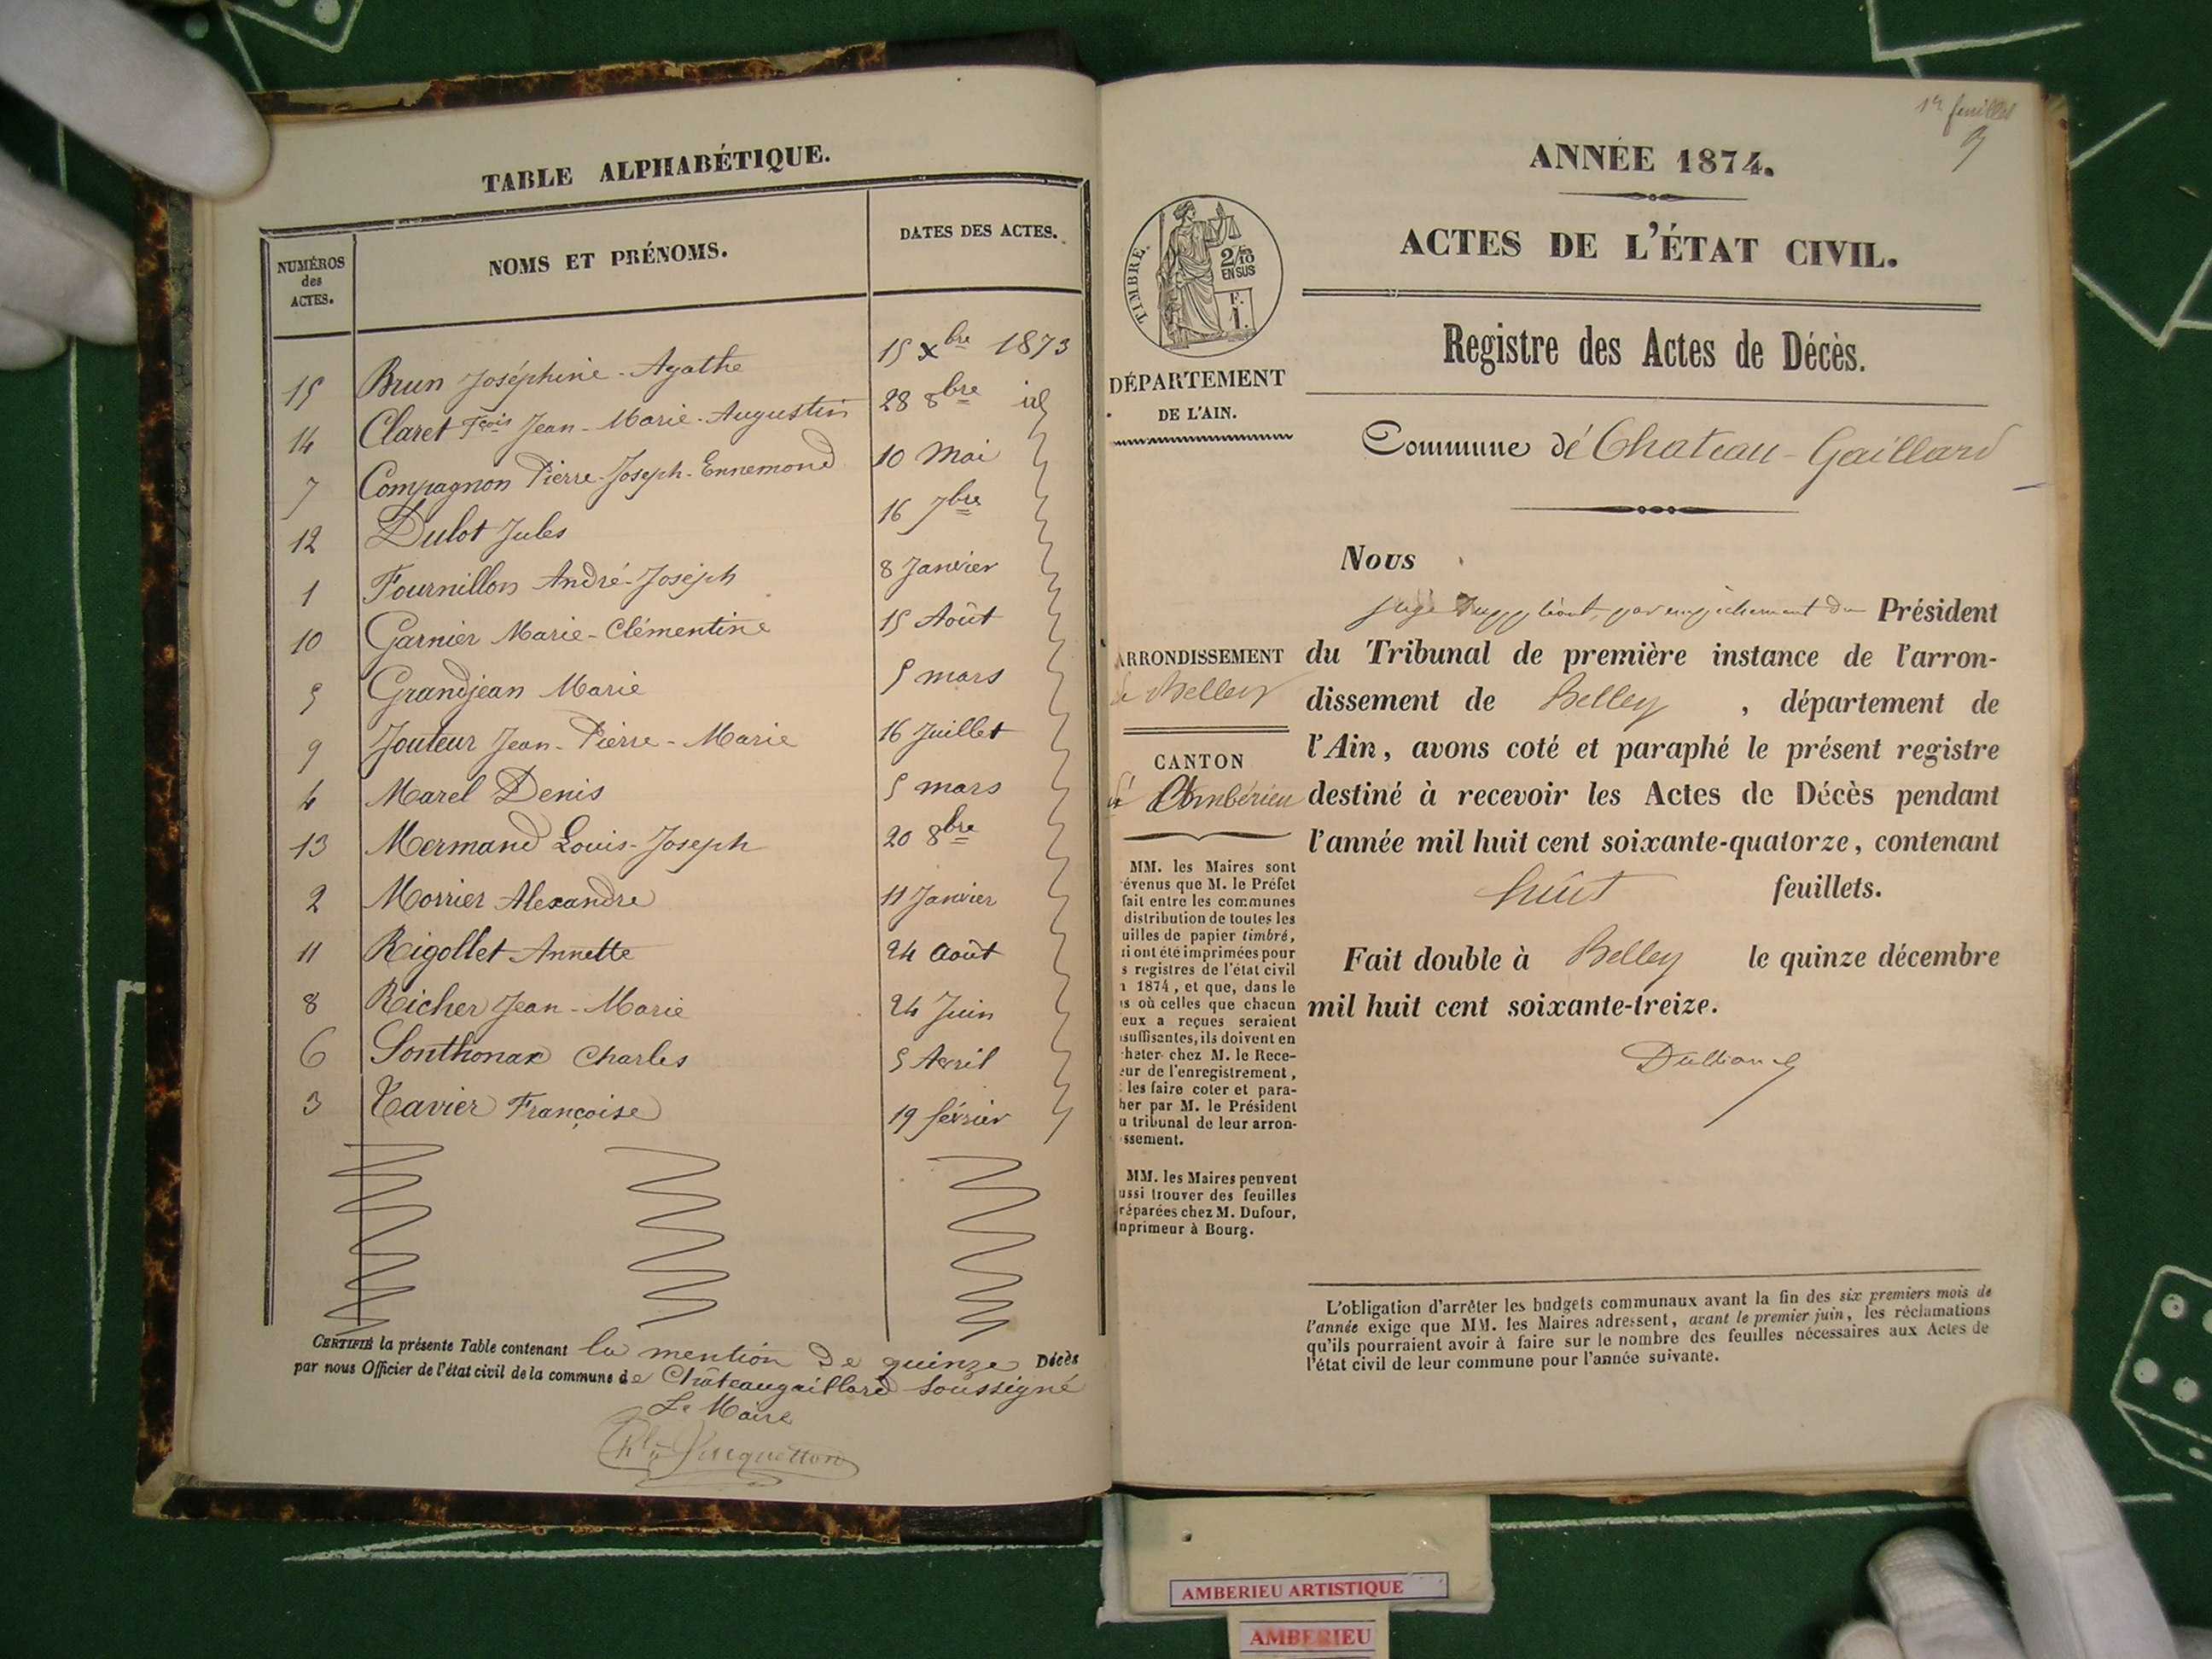 TABLE ALPHABÉTIQUE.
NUMÉROS des ACTES. NOMS ET PRÉNOMS. DATES DES ACTES.
15 Brun Joséphine-Agathe 15 Xbre 1873
14 Claret Fçois Jean-Marie-Augustin 28 8bre id
7 Compagnon Pierre-Joseph-Ennemond 10 Mai
12 Dulot Jules 16 7bre
1 Fournillon André-Joseph 8 Janvier
10 Garnier Marie-Clémentine 15 Août
5 Grandjean Marie 5 mars
9 Jouteur Jean-Pierre-Marie 16 Juillet
4 Marel Denis 5 mars
13 Mermand Louis-Joseph 20 8bre
2 Morrier Alexandre 11 Janvier
11 Rigollet Annette 24 août
8 Richer Jean-Marie 24 Juin
6 Sonthonax Charles 5 Avril
3 Tavier Françoise 19 février
CERTIFIÉ la présente Table contenant la mention de quinze Décès
par nous Officier de l'état civil de la commune de Châteaugaillard soussigné
Le Maire
1er feuillet
ANNÉE 1874.
ACTES DE L'ÉTAT CIVIL.
TIMBRE.
2/10
EN SUS
F. I.
Registre des Actes de Décès.
DÉPARTEMENT
DE L'AIN.
Commune de Chateau-Gaillard
Nous
juge suppléant, par empêchement du Président
du Tribunal de première instance de l'arron-
dissement de Belley, département de
l'Ain, avons coté et paraphé le présent registre
destiné à recevoir les Actes de Décès pendant
l'année mil huit cent soixante-quatorze, contenant
huit feuillets.
Fait double à Belley le quinze décembre
mil huit cent soixante-treize.
ARRONDISSEMENT
de Belley
CANTON
d'Ambérieu
MM. les Maires sont
évenus que M. le Préfet
fait entre les communes
distribution de toutes les
uilles de papier timbré,
ui ont été imprimées pour
s registres de l'état civil
1874, et que, dans le
s où celles que chacun
eux a reçues seraient
suffisantes, ils doivent en
heter chez M. le Rece-
eur de l'enregistrement,
les faire coter et para-
her par M. le Président
u tribunal de leur arron-
ssement.
MM. les Maires peuvent
ussi trouver des feuilles
réparées chez M. Dufour,
mprimeur à Bourg.
L'obligation d'arrêter les budgets communaux avant la fin des six premiers mois de
l'année exige que MM. les Maires adressent, avant le premier juin, les réclamations
qu'ils pourraient avoir à faire sur le nombre des feuilles nécessaires aux Actes de
l'état civil de leur commune pour l'année suivante.
AMBERIEU ARTISTIQUE
AMBERIEU